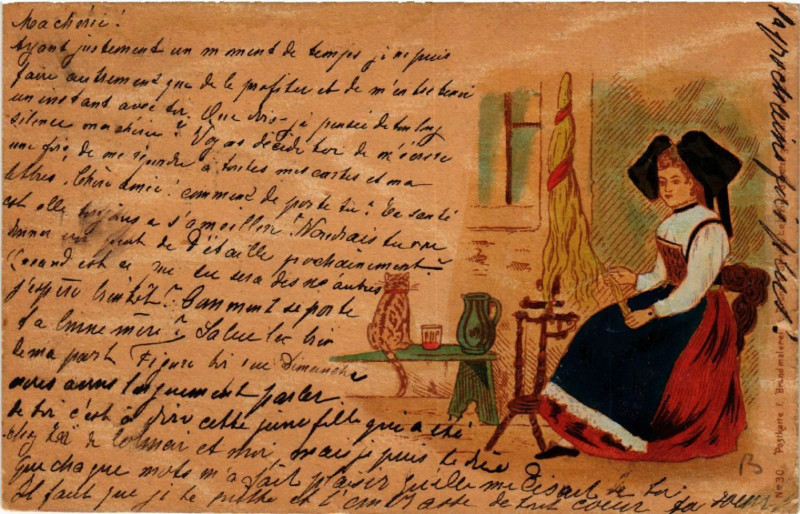 Ma chérie!
Ayant justement un moment de temps je ne puis
faire autrement que de le profiter et de m'entretenir
un instant avec toi. Que dois-je penser de ton long
silence ma chérie? Voyons décide toi de m'écrire
une fois, de me répondre à toutes mes cartes et ma
lettres. Chère amie! comment te porte tu? Ta santé
est elle toujours a s'ameillorer? Voudrais tu me
donner un peut de détaille prochainement?
Quand est ce que tu sera des nôtres
j'espère bientôt? Comment se porte
ta bonne mère? Salue la bien
de ma part. Figure toi que Dimanche
nous avons longuement parler
de toi c'est à dire cette jeune fille qui a été
chez toi de Colmar et moi, mais je puis te dire
que chaque mots m'a fait plaisir quelle me disait de toi
Il faut que je te quitte et t'embrasse de tout cœur ta sœur
la prochaine fois plus!
No 30. Postkarte f. Brandmalerei
B